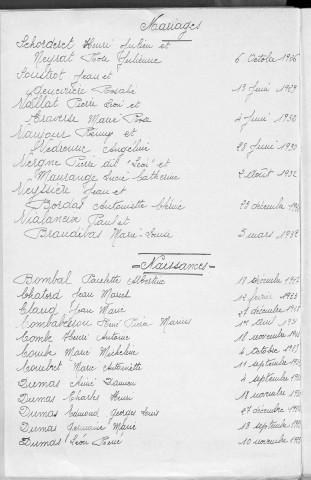 Mariages
Schorderet Henri Julien et
Neyrat Rose Julienne 6 Octobre 1926
Joustrot Jean et
Geneviève Rosalie 13 Juin 1929
Vaillat Pierre Léon et
Traverse Marie Rose 4 Juin 1930
Vaujour Rémy et
Védrenne Angéline 28 Juin 1930
Vergne Pierre dit "Léon" et
Maurange Lucie Catherine 2 Août 1932
Veyssière Jean et
Bordas Antoinette 23 décembre
Vialaneix Paul et
Braudivas Marie-Louise 5 mars 1932
=Naissances=
Bombal Paulette Albertine 18 décembre
Chatard Jean Marcel 12 février 1933
Claug Jean Marc 27 décembre
Combabessou René Pierre Marius 1er Avril
Combe Henri Antoine 18 novembre
Combe Marie Micheline 6 Octobre
Coulbet Marie Antoinette 11 septembre
Dumas Aimé Damien 4 septembre
Dumas Charles Henri 18 novembre
Dumas Edmond Georges Louis 27 décembre
Dumas Germaine Marie 13 septembre
Dumas Léon René 10 novembre